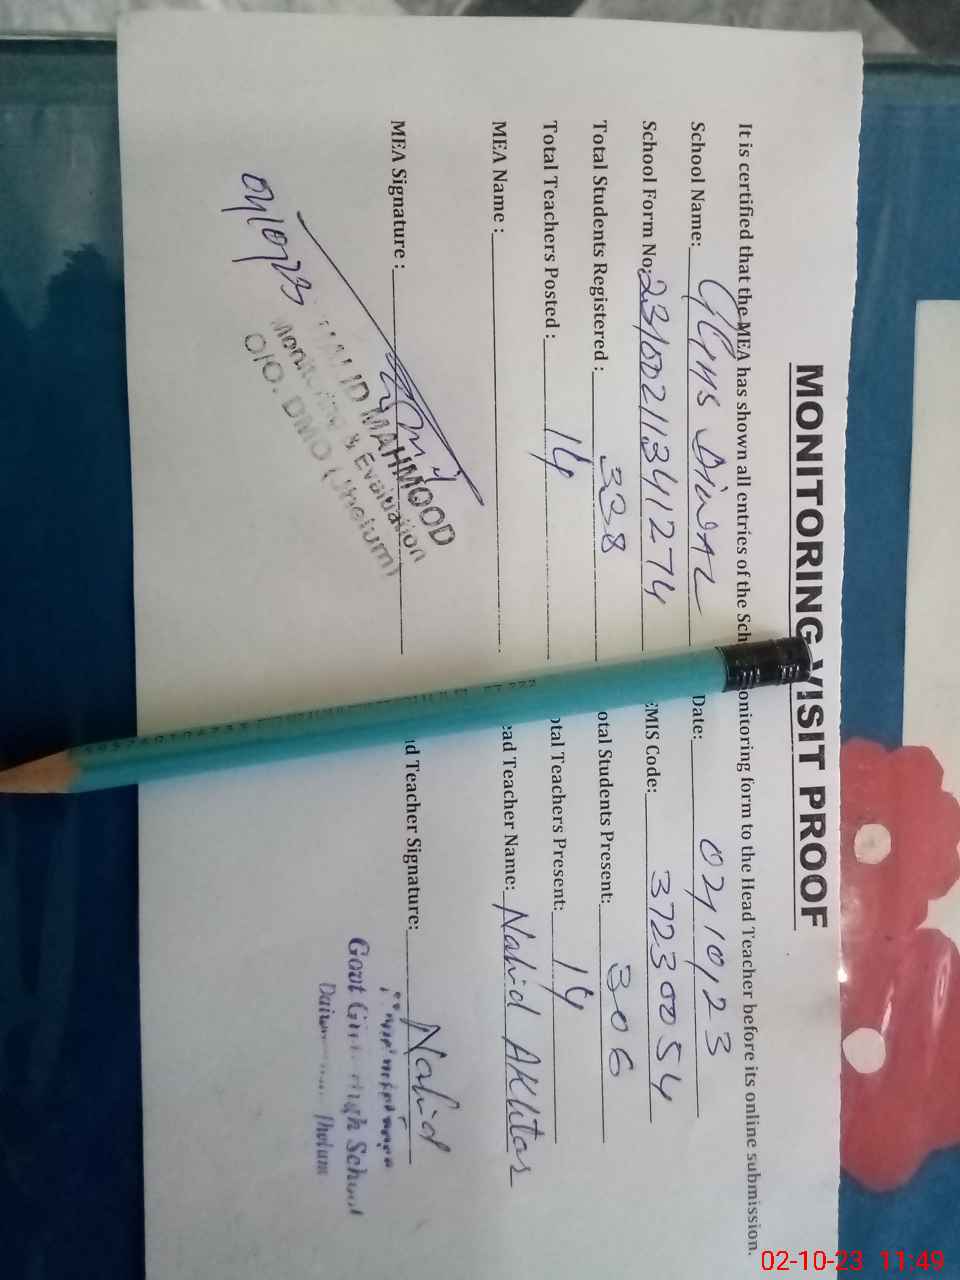 MONITORING VISIT PROOF
It is certified that the MEA has shown all entries of the Sch onitoring form to the Head Teacher before its online submission.
School Name: GGHS DIWAL Date: 02/10/23
School Form No: 2310021134127 4 EMIS Code: 37230054
Total Students Registered : 338 otal Students Present: 306
Total Teachers Posted : 14 otal Teachers Present: 14
MEA Name : ead Teacher Name: Nahid Akhtar
MEA Signature : d Teacher Signature: Nahid
KHALID MAHMOOD
Monitoring & Evaluation
O/O. DMO (Jhelum)
Govt Girls High School
Jhelum
02-10-23 11:49